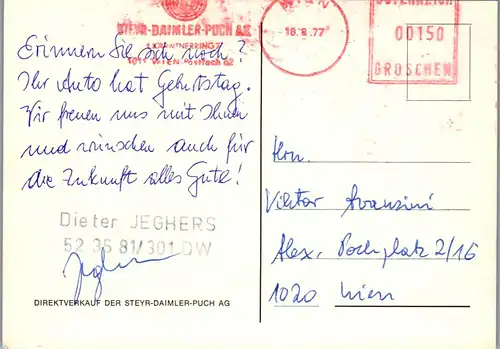 STEYR-DAIMLER-PUCH AG
1 KÄRNTNERRING 7
1011 WIEN Postfach 62
WIEN
18.8.77
ÖSTERREICH
00150
GROSCHEN
Erinnern Sie sich noch?
Ihr Auto hat Geburtstag.
Wir freuen uns mit Ihnen
und wünschen auch für
die Zukunft alles Gute!
Dieter JEGHERS
52 36 81/301 DW
DIREKTVERKAUF DER STEYR-DAIMLER-PUCH AG
Hrn.
Viktor Avanzini
Alex. Pochplatz 2/16
1020 Wien